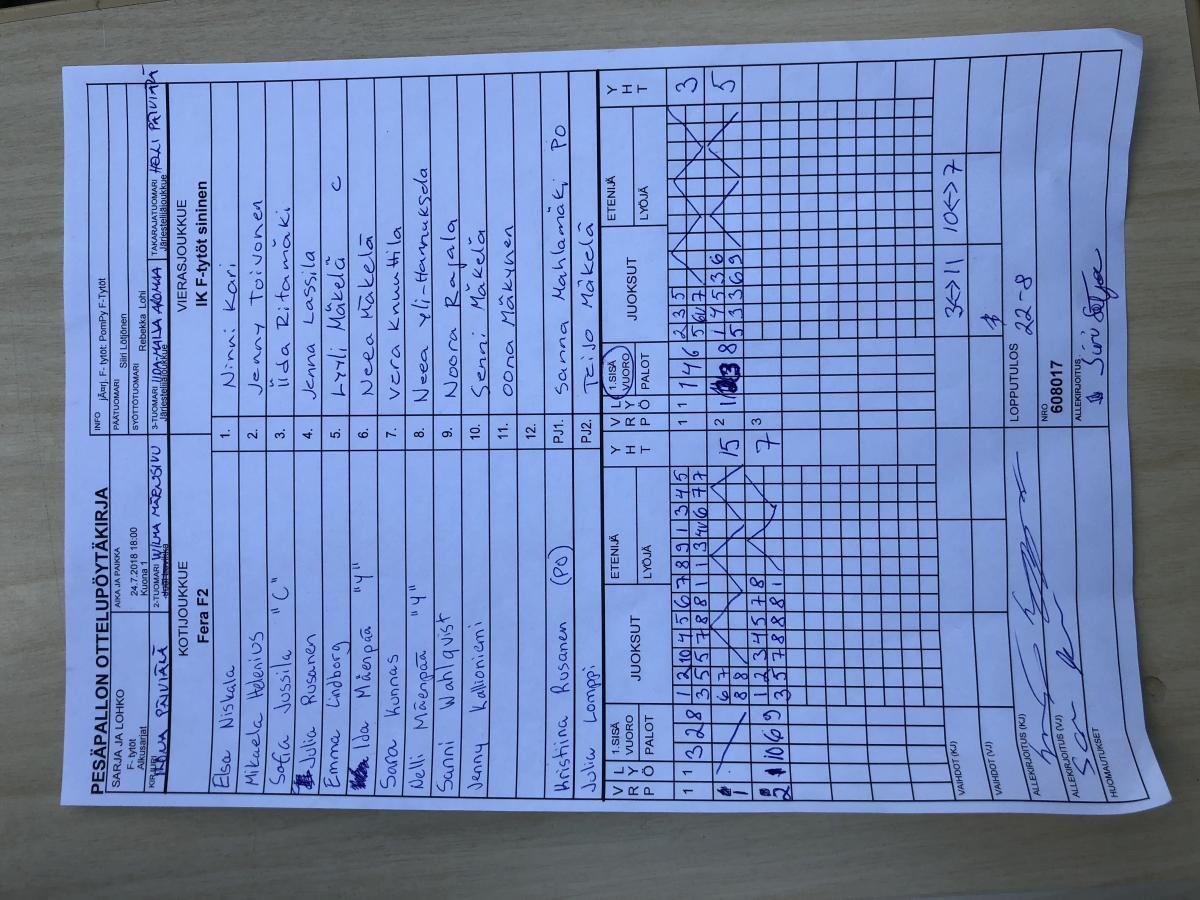 PESÄPALLON OTTELUPÖYTÄKIRJA
SARJA JA LOHKO
F- tytöt
Alkusarjat
AIKA JA PAIKKA
24.7.2018 18:00
Kuona 1
INFO jÄ¤rj. F- tytöt: PomPy F-Tytöt
PÄÄTUOMARI Siiri Lötjönen
SYÖTTÖTUOMARI Rebekka Lohi
KIRJURI PÄIVIÄLÄ
2-TUOMARI WILMA MÄENSIVU
3-TUOMARI IIDA-MAIJA
Järjestelijäjoukkue
TAKARAJATUOMARI HELI PÄLVIÄLÄ
Järjestelijäjoukkue
KOTIJOUKKUE
Fera F2
VIERASJOUKKUE
IK F-tytöt sininen
Elsa Niskala 1. Ninni Kari
Mikaela Helenius 2. Jenny Toivonen
Sofia Jussila "C" 3. Iida Ritamäki
Julia Rusanen 4. Jenna Lassila
Emma Lindborg 5. Lyyli Mäkelä C
Ida Mäenpää "Y" 6. Neea Mäkelä
Sara Kunnas 7. Vera Knuuttila
Nelli Mäenpää "Y" 8. Neea Yli-Hannuksela
Sanni Wahlqvist 9. Noora Rajala
Jenny Kallioniemi 10. Senni Mäkelä
11. Oona Mäkynen
12.
Kristiina Rusanen (PO) PJ1. Sanna Mahlamäki PO
Julia Lomppi PJ2. Teijo Mäkelä
V L
R Y
P Ö
1.SISÄ
VUORO
PALOT
JUOKSUT
ETENIJÄ
LYÖJÄ
Y
H
T
V L
R Y
P Ö
1.SISÄ
VUORO
PALOT
JUOKSUT
ETENIJÄ
LYÖJÄ
Y
H
T
1 1 3 2 8 1 2 10 4 5 6 7 8 9 1 3 4 5
3 5 5 7 8 8 1 1 3 6 7 7
1 1 1 4 6 2 3 5 3
1 6 7 15
8 8
2 8 1 4 5 3 6 5
5 3 3 6 9
2 10 6 9 1 2 3 4 5 7 8 7
3 5 7 8 8 8 1
3
VAIHDOT (KJ) 3<->11 10<->7
VAIHDOT (VJ)
ALLEKIRJOITUS (KJ)
LOPPUTULOS 22-8
ALLEKIRJOITUS (VJ)
NRO
608017
ALLEKIRJOITUS Siiri
HUOMAUTUKSET